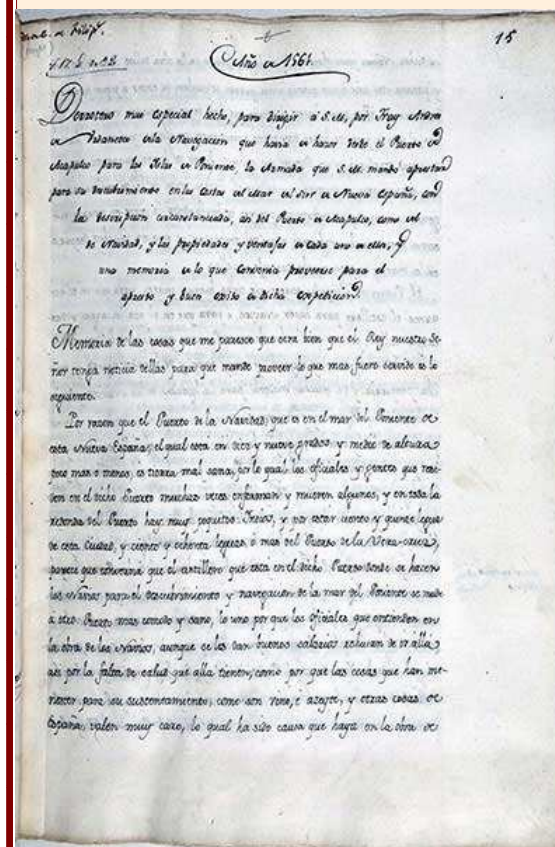 15
Año de 1561.
Derrotero mui especial hecho, para dirigir á S. M. por Fray Andres
de Urdaneta de la Navegacion que havia de hacer desde el Puerto de
Acapulco para las Islas de Poniente, la Armada que S. M. mandó aprestar
para su descubrimiento en las costas del Mar del Sur de Nueva España, con
la descripcion circunstanciada, asi del Puerto de Acapulco, como del
de Navidad, y las propiedades y ventajas de cada uno de ellos, y
una memoria de lo que convenia proveerse para el
apresto y buen exito de dicha expedicion.
Memoria de las cosas que me paresce que será bien que el Rey nuestro Se-
ñor tenga noticia dellas para que mande proveer lo que mas fuere servido es lo
siguiente.
Por razon que el Puerto de la Navidad, que es en el mar del Poniente de
esta Nueva España, el qual esta en diez y nueve grados y medio de altura
poco mas o menos, es tierra mal sana, por lo qual los oficiales y gentes que resi-
den en el dicho Puerto muchas veces enferman y mueren algunos, y en toda la
redonda del Puerto hay muy poquitos Indios, y por estar ciento y quince leguas
de esta Ciudad, y ciento y ochenta leguas, ó mas del Puerto de la Vera-cruz,
parece que convernia que el astillero que esta en el dicho Puerto donde se hacen
los Navios para el descubrimiento y navegacion de la mar del Poniente se mude
a otro Puerto mas comodo y sano, lo uno por que los oficiales que entienden en
la obra de los Navios, aunque se les dan buenos salarios rehusan de ir alla,
asi por la falta de salud que alla tienen, como por que las cosas que han me-
nester para su sustentamiento, como son vino, é azeyte, y otras cosas de
España, valen muy caro, lo qual ha sido causa que haya en la obra de